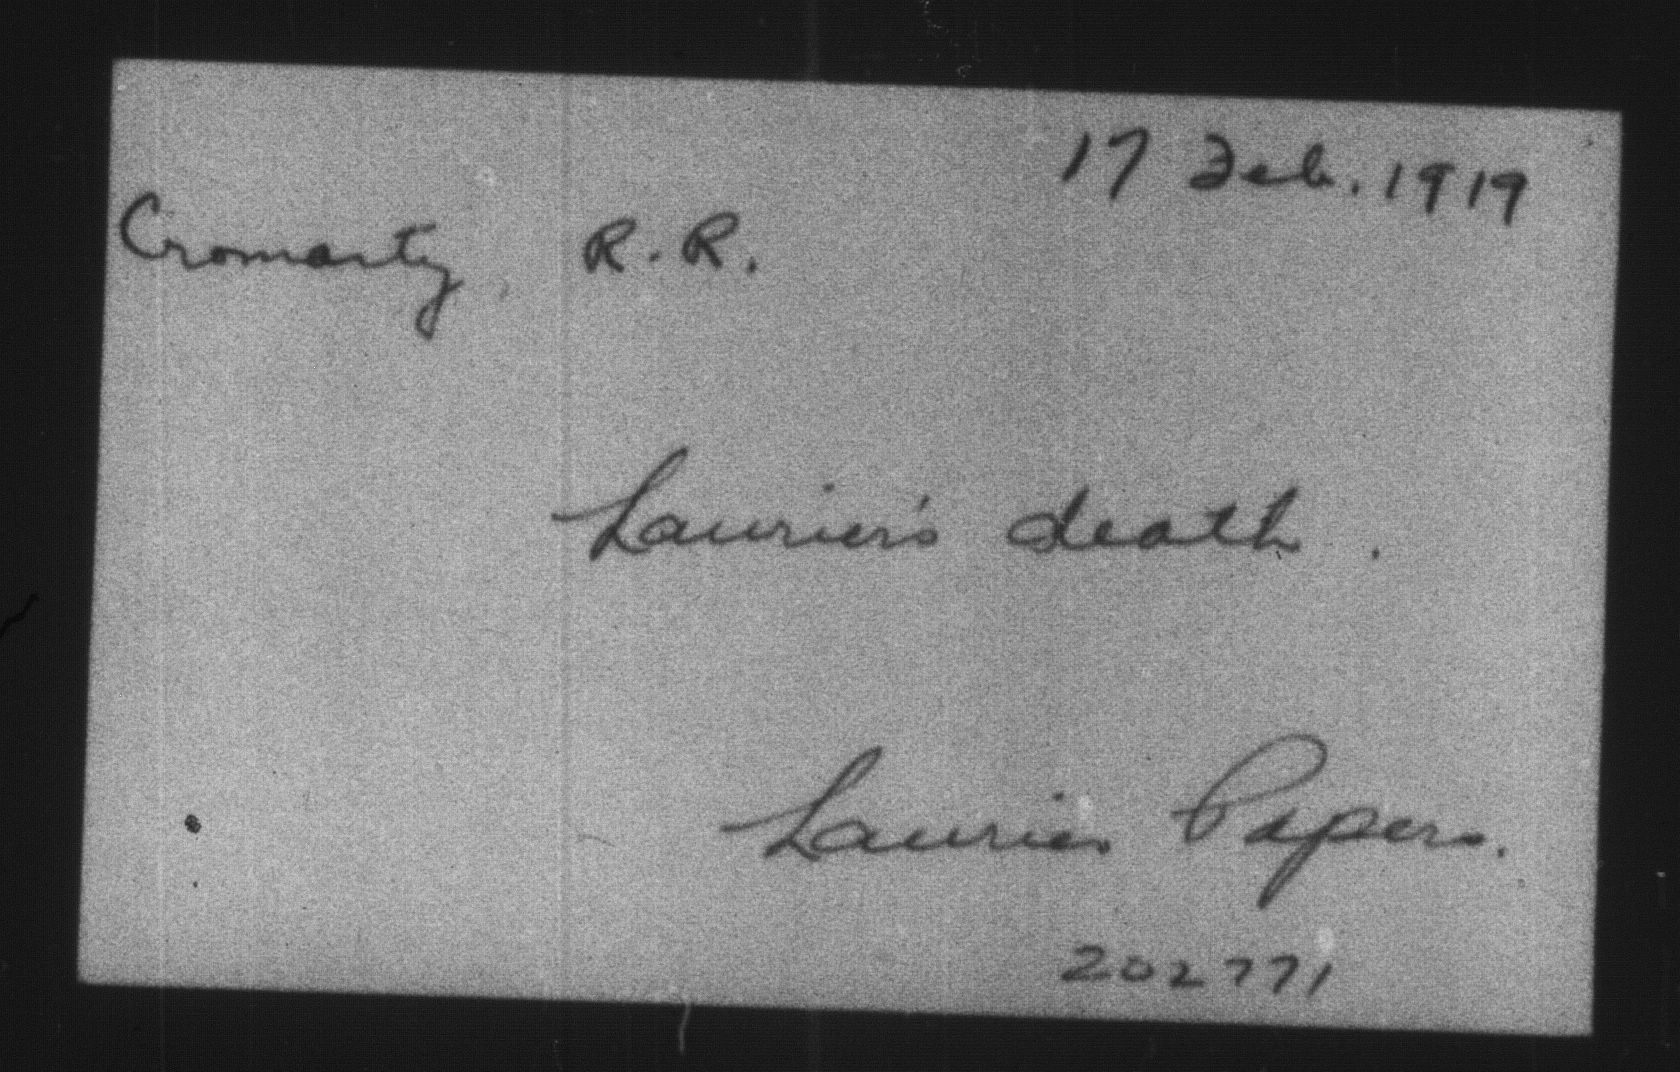 17 Feb. 1919
Cromarty, R.R.
Laurier's death.
Laurier Papers.
202771